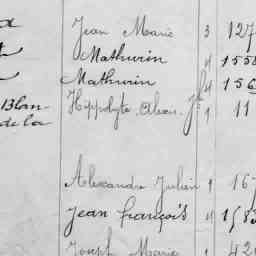 Jean Marie 3 127
Mathurin 4 1550
Mathurin 4 156
Blan- Hippolyte 1 11
de la
Alexandre Julien 1 167
Jean François 4 1583
Joseph Marie 1 420